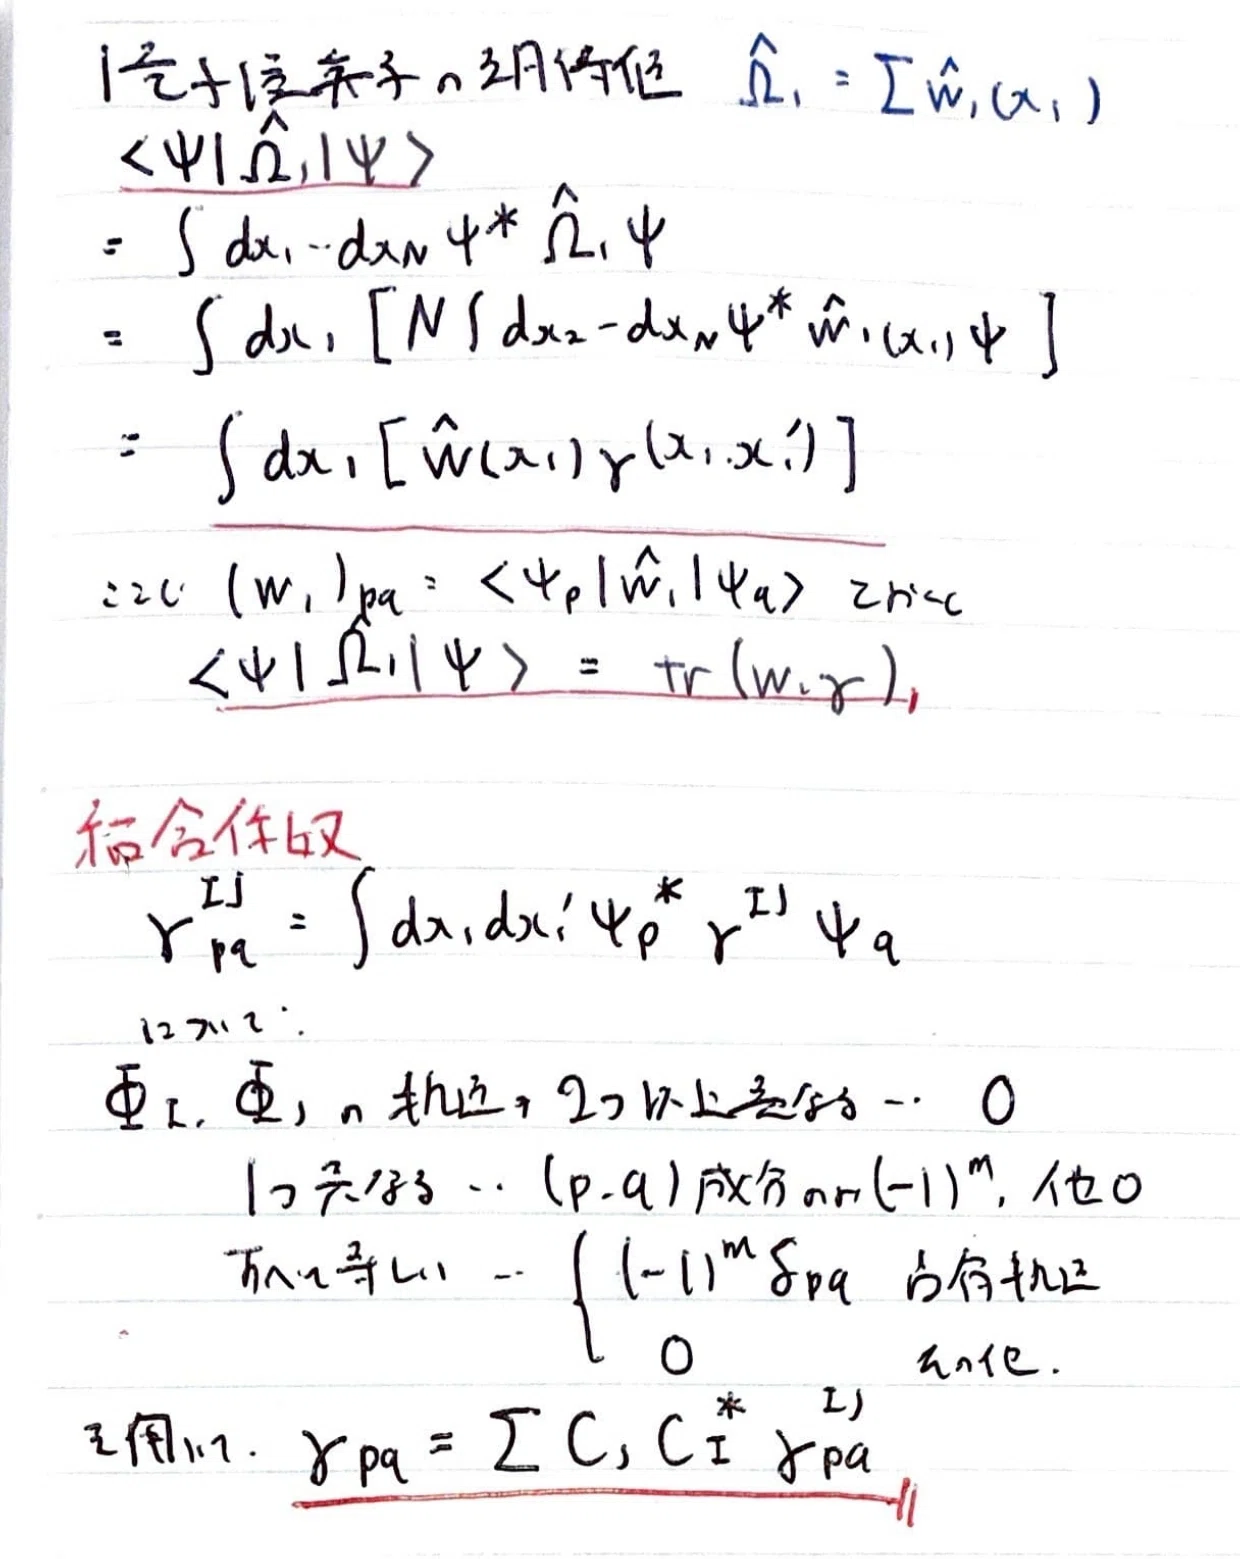 1電子演算子の期待値 Ω̂₁ = Σŵ₁(x₁)
<ψ|Ω̂₁|ψ>
= ∫ dx₁…dx_N ψ* Ω̂₁ ψ
= ∫ dx₁ [N ∫ dx₂…dx_N ψ* ŵ₁(x₁) ψ]
= ∫ dx₁ [ŵ(x₁) γ(x₁.x₁′)]
ここで (w₁)pq = <ψp|ŵ₁|ψq> とおくと
<ψ|Ω̂₁|ψ> = tr(w₁γ),
結合係数
γ^{IJ}_{pq} = ∫ dx₁dx₁′ ψp* γ^{IJ} ψq
について.
Φ_I, Φ_J の軌道が2つ以上異なる … 0
1つ異なる … (p.q)成分のみ(-1)^m, 他0
すべて等しい … { (-1)^m δpq 占有軌道
0 その他.
を用いて. γpq = Σ C_J C_I* γ^{IJ}_{pq}